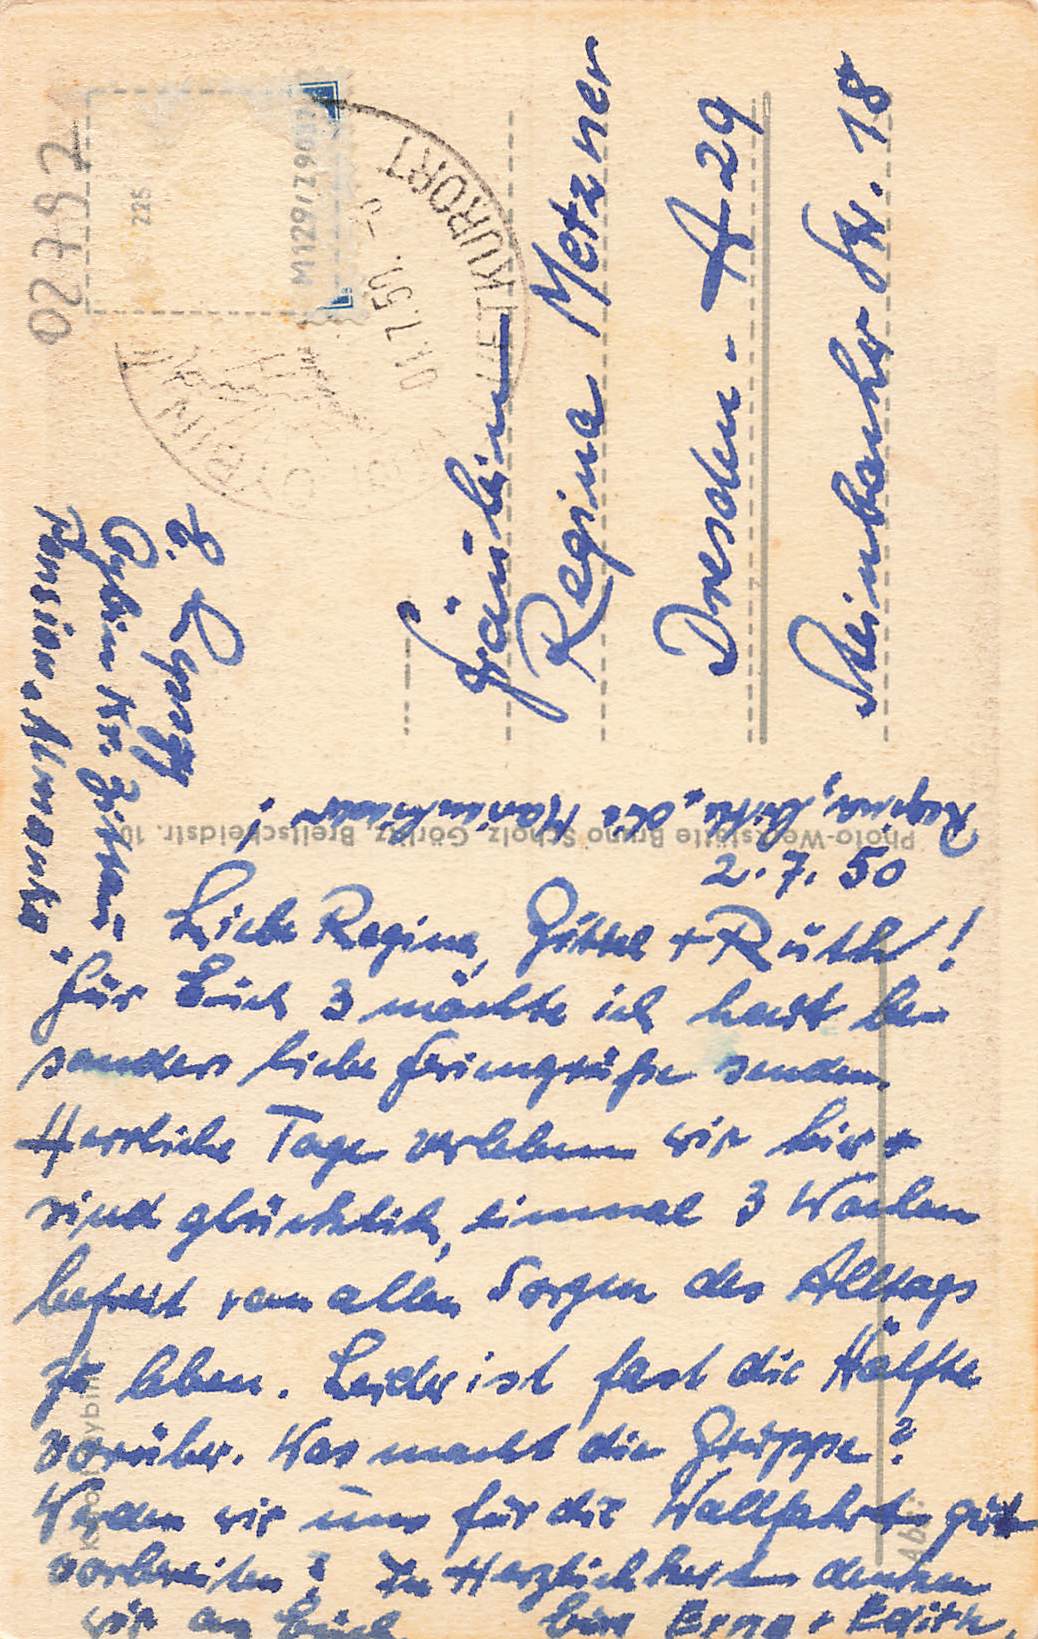 02792
225
M129/Z9087
KURORT
OYBIN
01.7.50.
Fräulein
Regina Metzner
Dresden-A 29
Steinbacher Str. 18
Oybin Kr. Zittau
Pension "Almanka"
Regina, bitte, die Marienlieder!
Photo-Werkstätte Bruno Scholz, Görlitz, Breitscheidstr. 10
2.7.50
Liebe Regina, Gittel + Ruth!
Für Euch 3 möchte ich heut be-
sonders liebe Feriengrüße senden.
Herrliche Tage verleben wir hier +
sind glücklich, einmal 3 Wochen
befreit von allen Sorgen des Alltags
zu leben. Leider ist fast die Hälfte
vorüber. Was macht die Gruppe?
Werden wir uns für die Wallfahrt gut
vorbereiten? In Herzlichkeit denken
wir an Euch
Eure Erna + Edith.